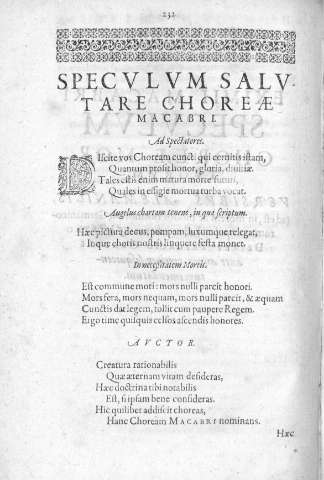 232
SPECVLVM SALV
TARE CHOREÆ
MACABRI.
Ad Spectatores.
DIscite vos Choream cuncti qui cernitis istam,
Quantum prosit honor, gloria, divitiæ.
Tales estis enim matura morte futuri,
Quales in effigie mortua turba vocat.
Angelus chartam tenens, in qua scriptum.
Hæc pictura decus, pompam, luxumque relegat,
Inque choris nostris linquere festa monet.
In necessitatem Mortis.
Est commune mori: mors nulli parcit honori.
Mors fera, mors nequam, mors nulli parcit, & æquam
Cunctis dat legem, tollit cum paupere Regem.
Ergo time quisquis celsos ascendis honores.
AVCTOR.
Creatura rationabilis
Quæ æternam vitam desideras,
Hæc doctrina tibi notabilis
Est, si ipsam bene consideras.
Hic quilibet addiscit choreas,
Hanc Choream MACABRI nominans.
Hæc